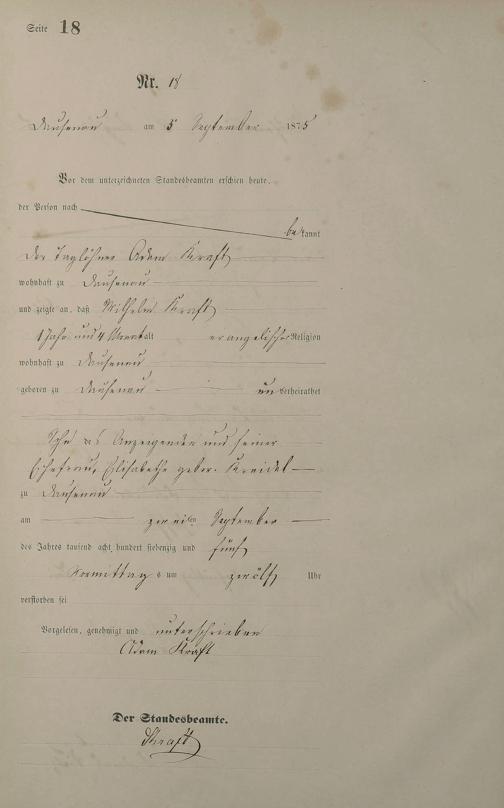 Seite 18
Nr. 18
Dausenau am 5 September 1875
Vor dem unterzeichneten Standesbeamten erschien heute,
der Person nach
bekannt
Der Taglöhner Adam Kraft
wohnhaft zu Dausenau
und zeigte an, daß Wilhelm Kraft
1 Jahr und 4 Monat alt evangelischer Religion
wohnhaft zu Dausenau
geboren zu Dausenau unverheirathet
Sohn des Anzeigenden und seiner
Ehefrau, Elisabethe geber. Kreidel
zu Dausenau
am zweiten September
des Jahres tausend acht hundert siebenzig und fünf
Vormittags um zwölf Uhr
verstorben sei
Vorgelesen, genehmigt und unterschrieben
Adam Kraft
Der Standesbeamte.
Kraft